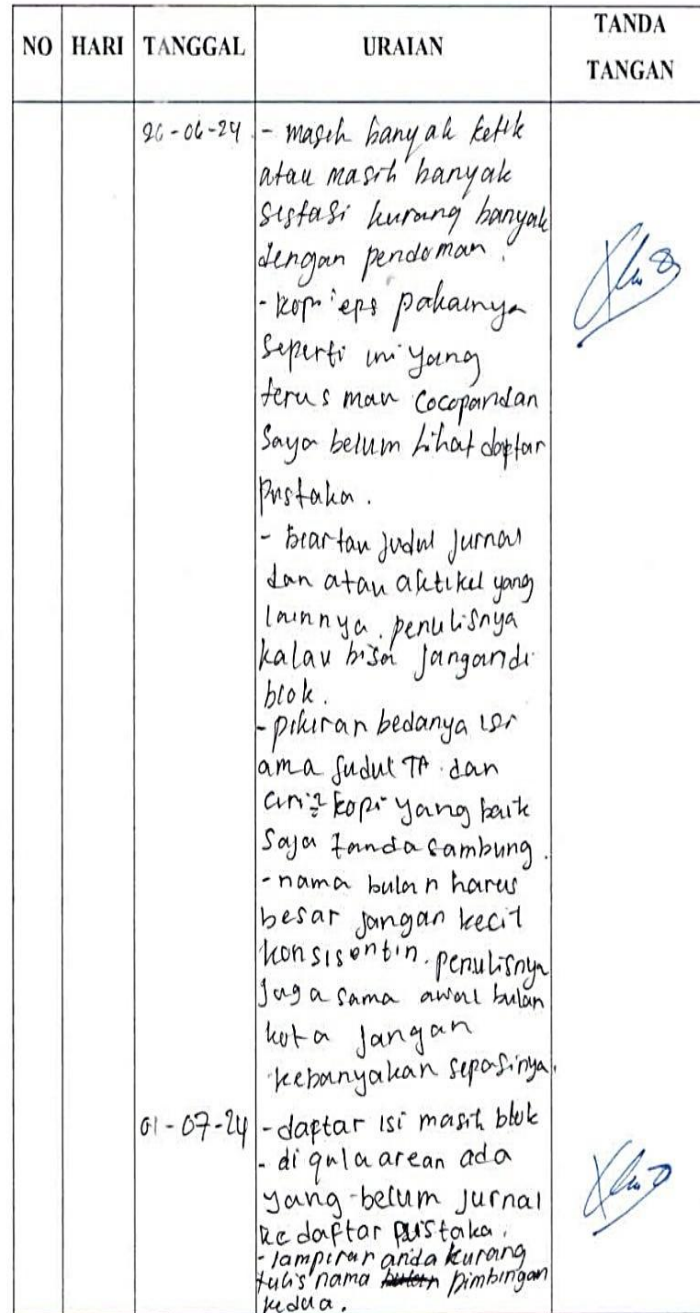 NO HARI TANGGAL URAIAN TANDA TANGAN
26-06-24 - masih banyak ketik
atau masih banyak
sistasi kurang banyak
dengan pendoman.
- kopi eps pakainya
seperti ini yang
terus mau Cocopandan
Saya belum lihat daptar
Pustaka.
- judul Jurnal
dan atau aktikel yang
lainnya. penulisnya
kalau bisa jangan di
blok.
- pikiran bedanya isi
ama judul TA dan
kopi yang baik
Saja tanda sambung.
- nama bulan harus
besar jangan kecil
konsisentin. penulisnya
juga sama awal bulan
kota jangan
kebanyakan sepasinya.
01-07-24 - daptar isi masih blok
- di gula arean ada
yang belum Jurnal
ke daftar pustaka.
- lampiran anda kurang
tulis nama pimbingan
kedua.